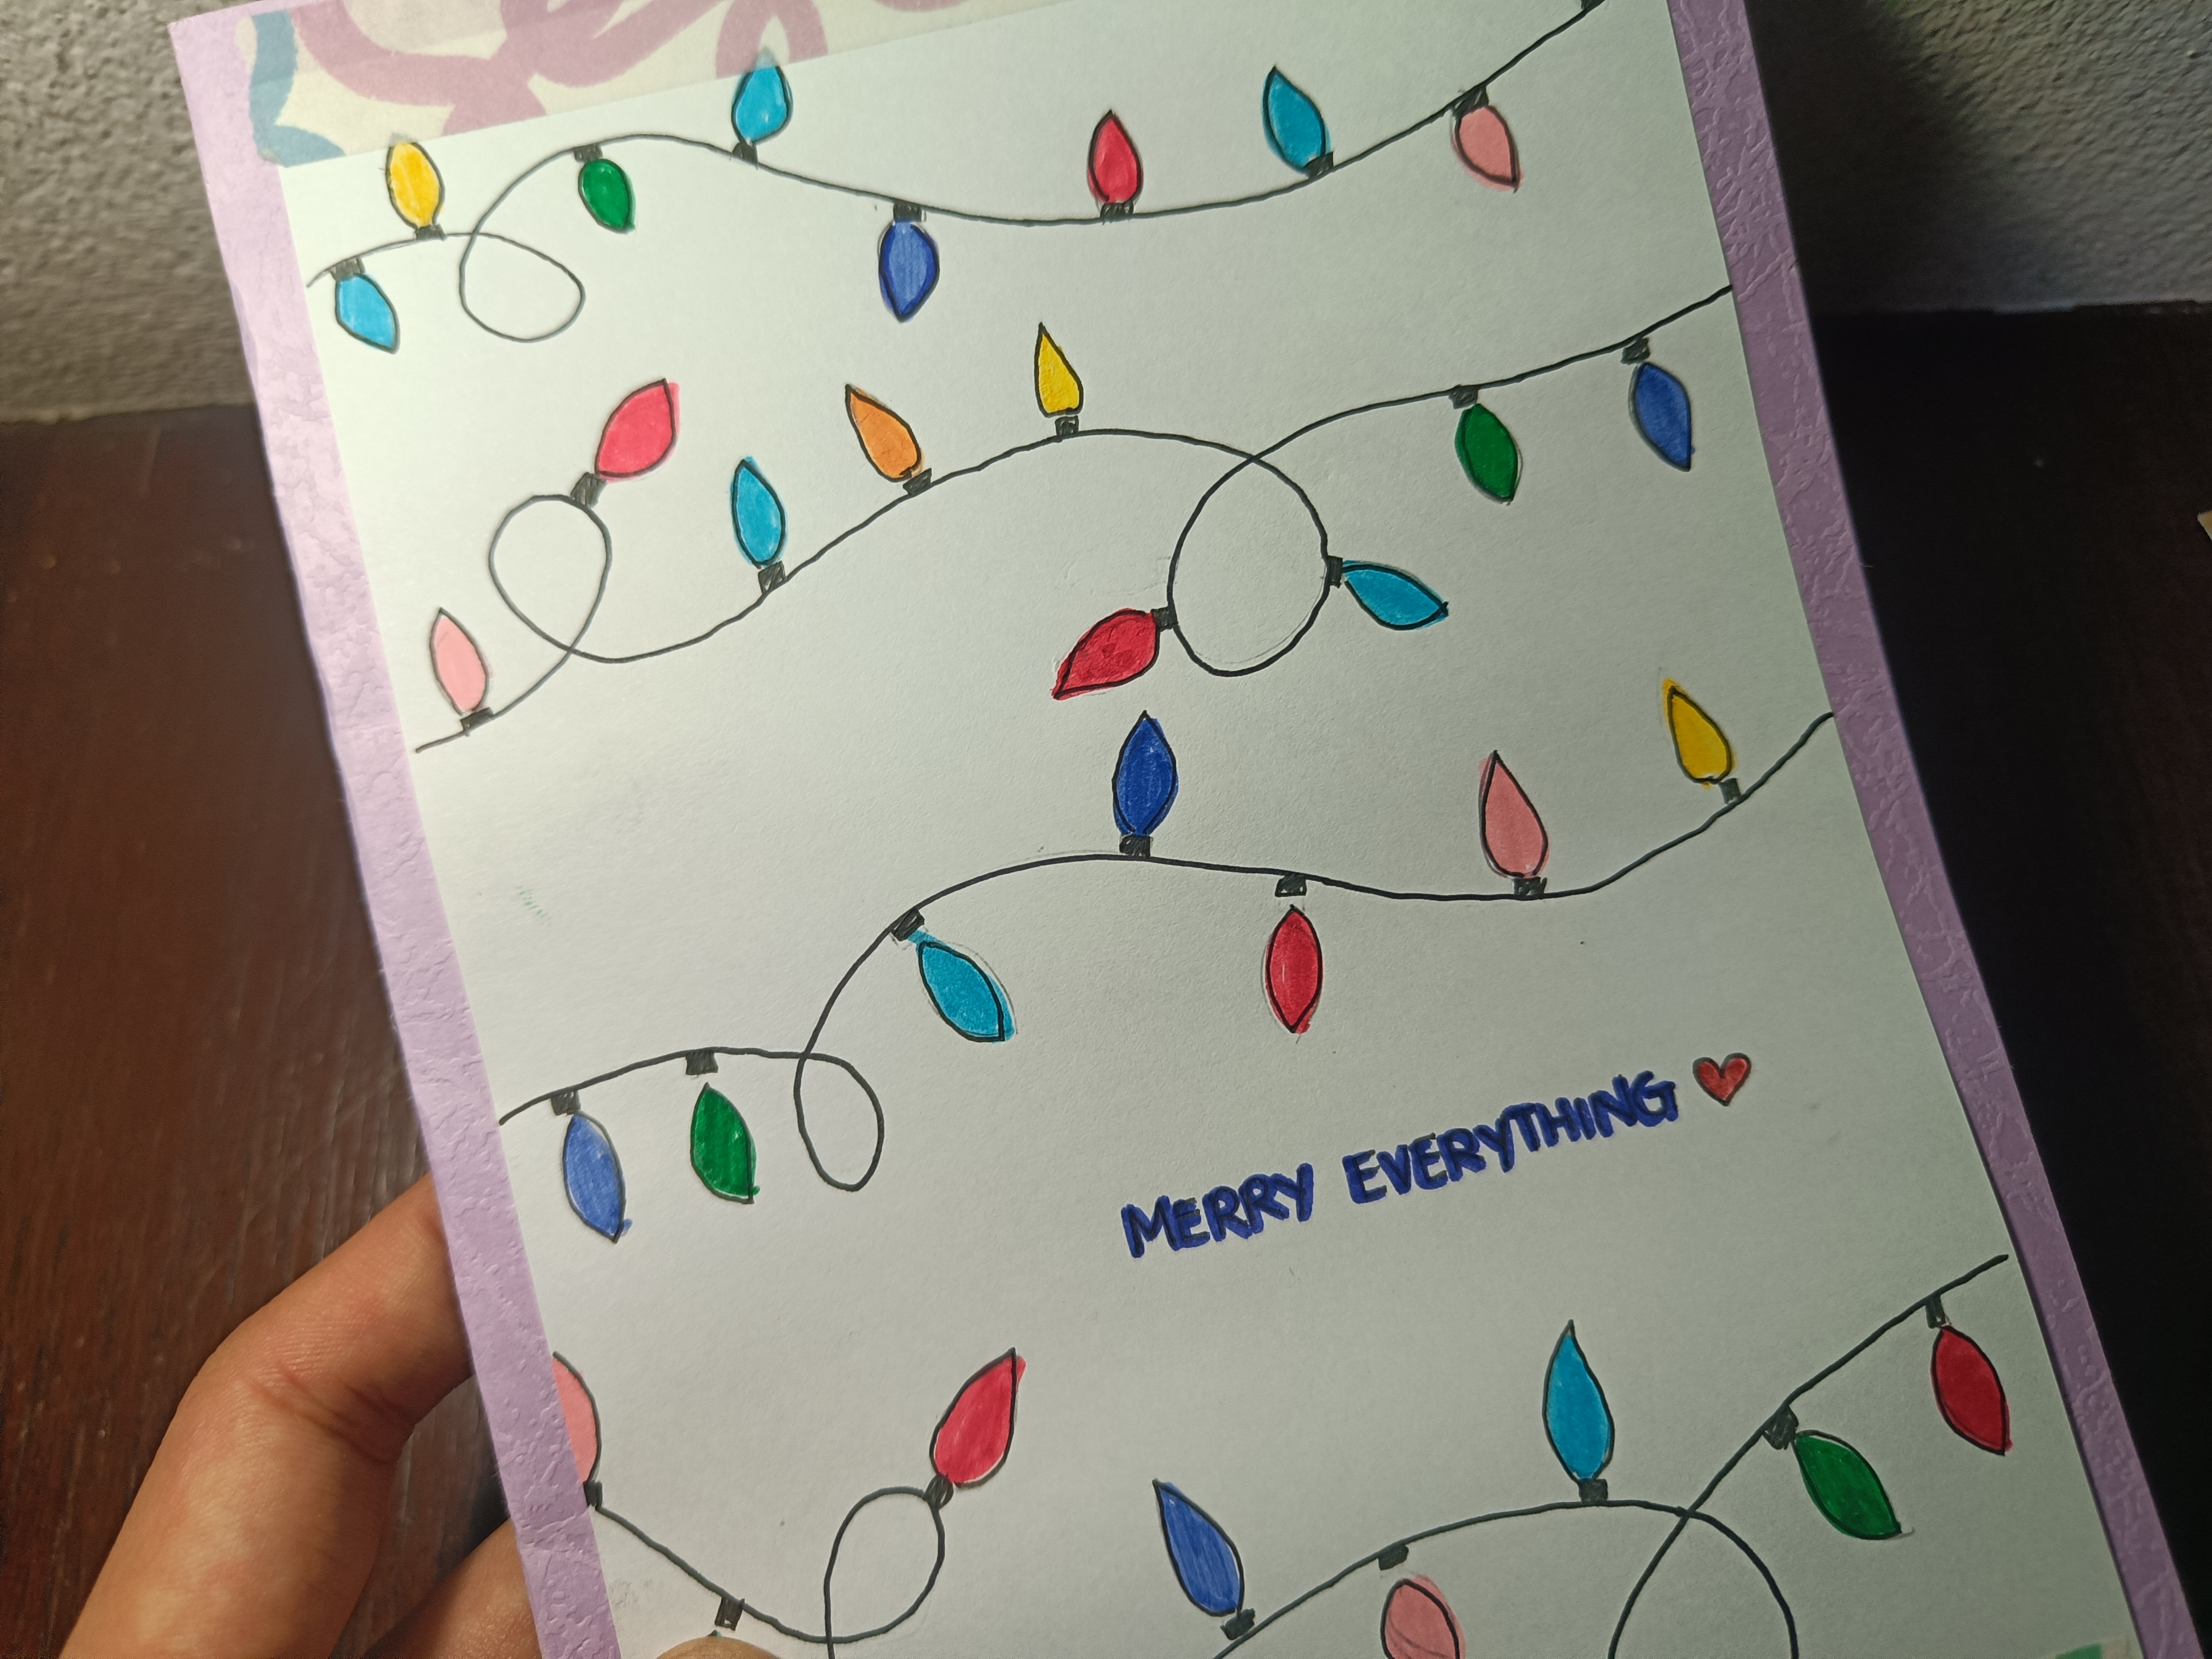 MERRY EVERYTHING